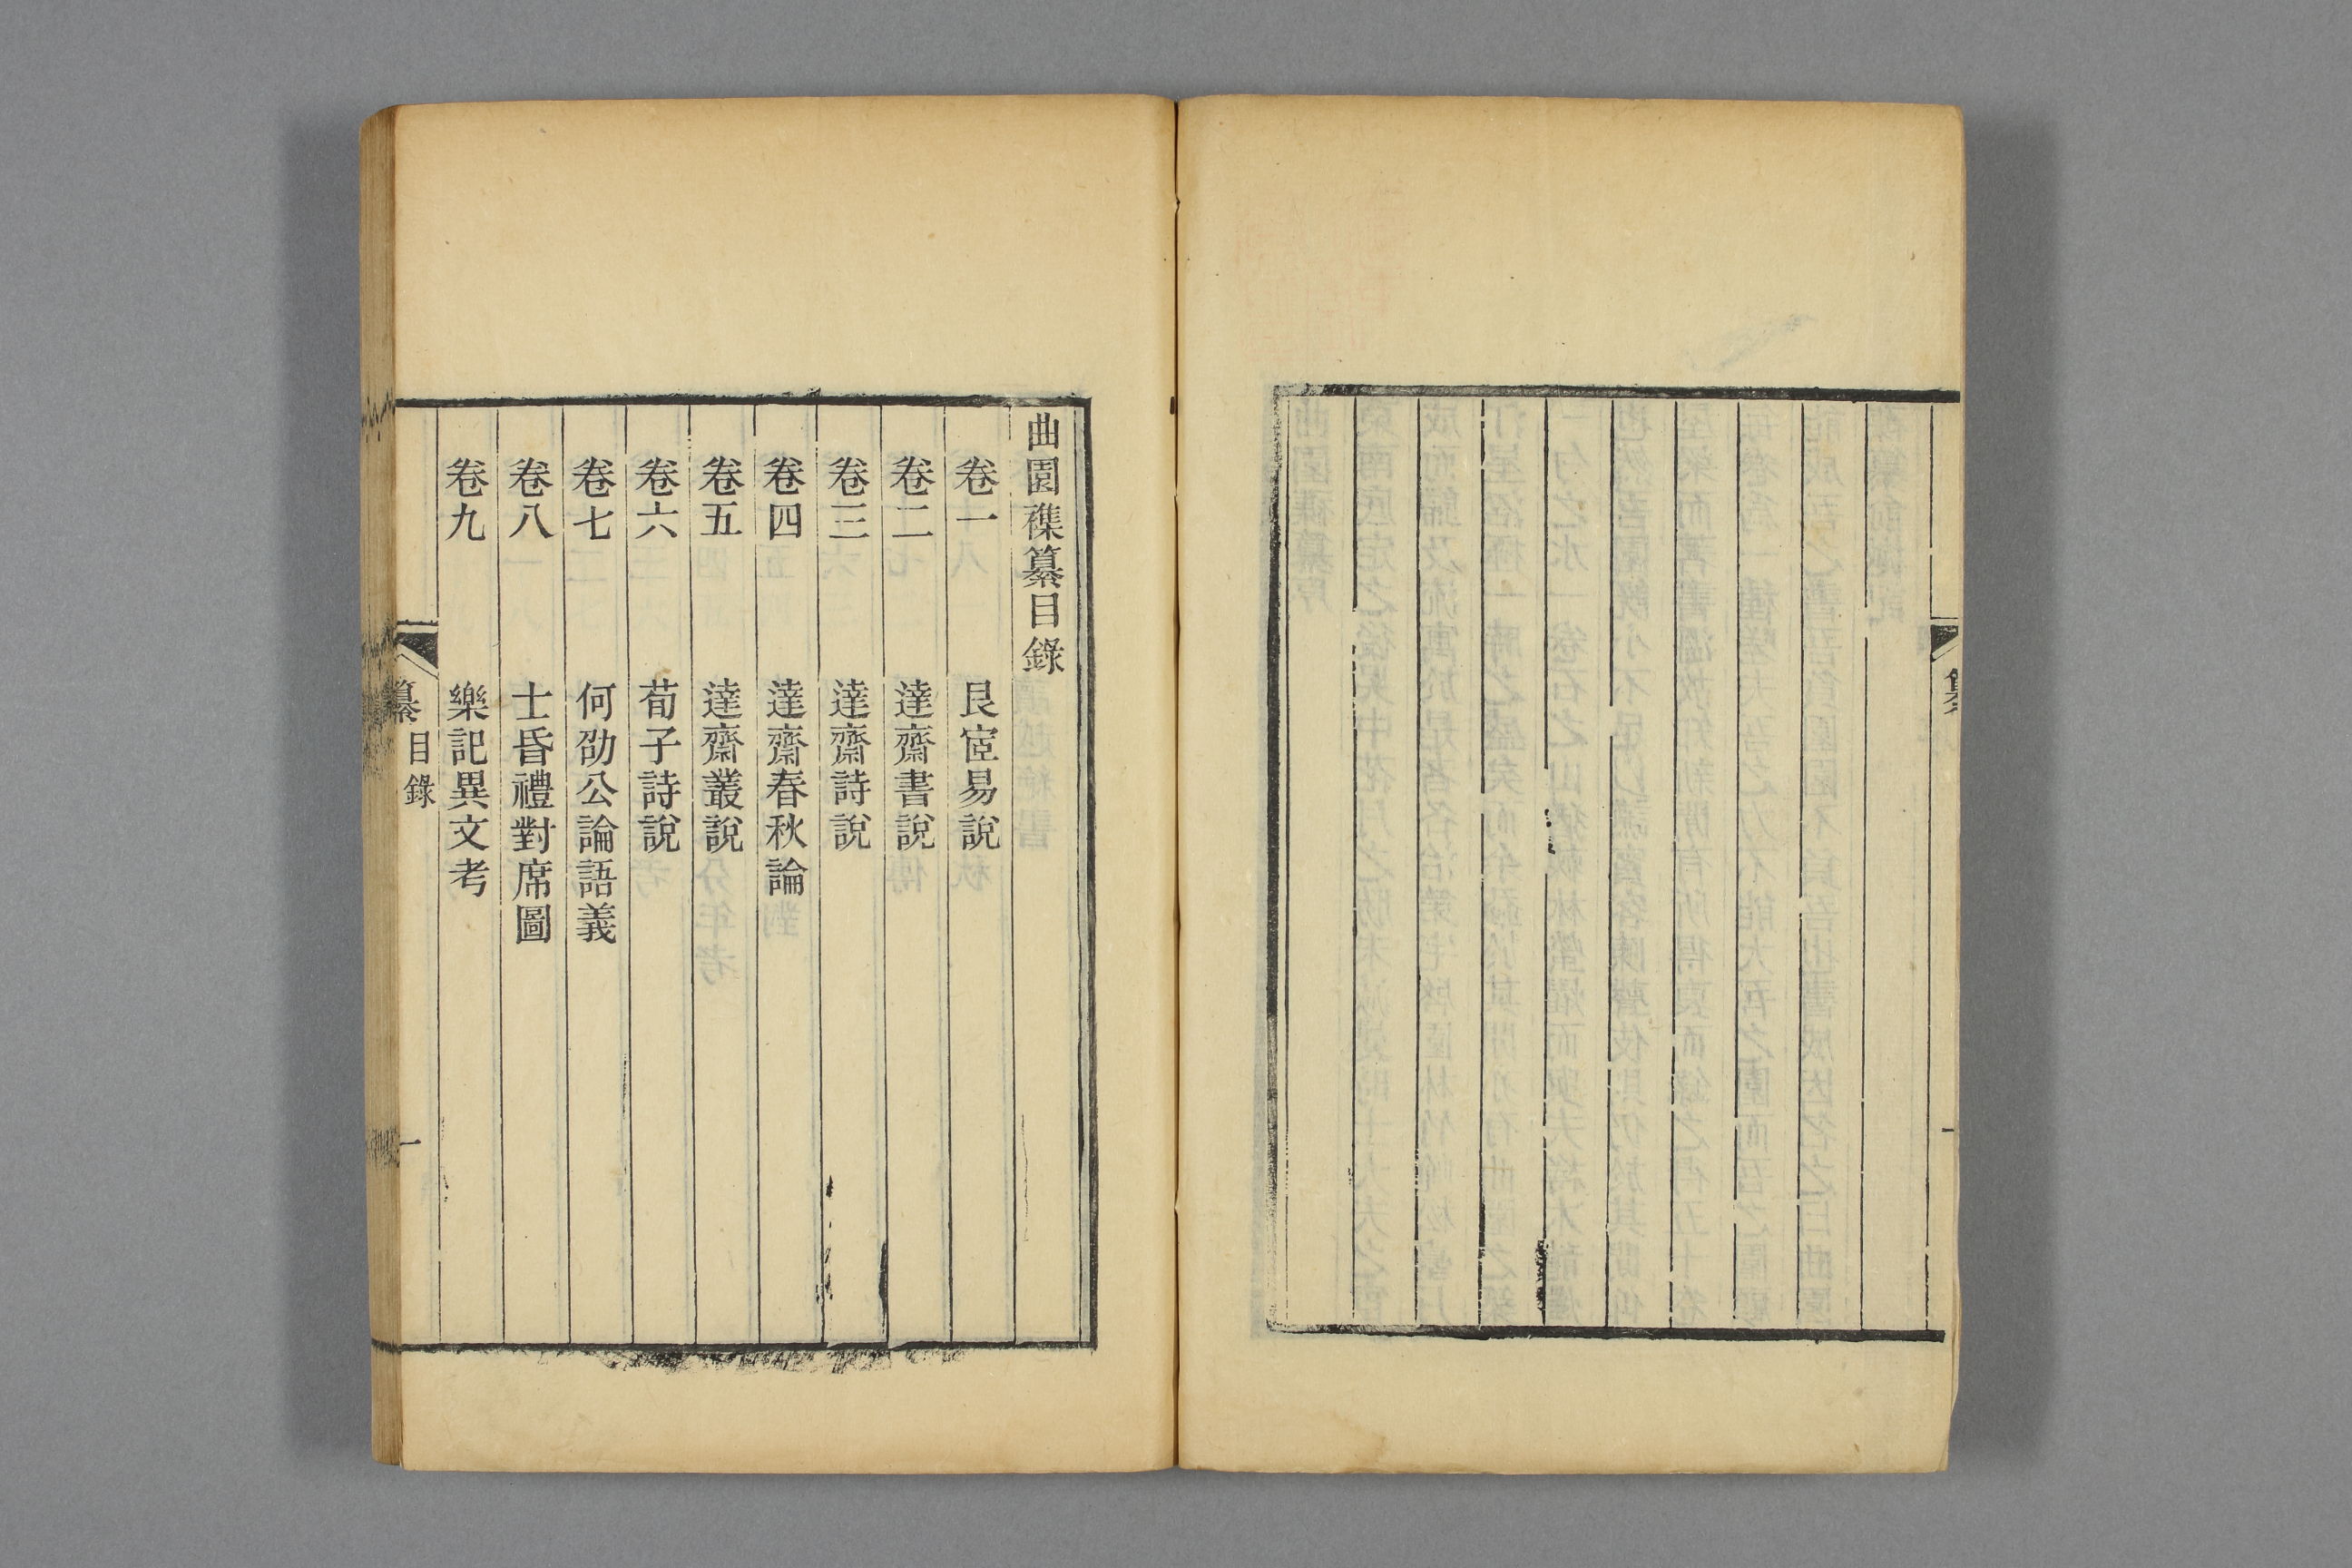 纂
一
曲園襍纂目錄
卷一 艮宧易說
卷二 達齋書說
卷三 達齋詩說
卷四 達齋春秋論
卷五 達齋叢說
卷六 荀子詩說
卷七 何劭公論語義
卷八 士昏禮對席圖
卷九 樂記異文考
纂 目錄
一